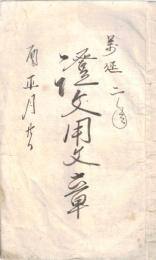 萬延二
證文用文章
酉正月